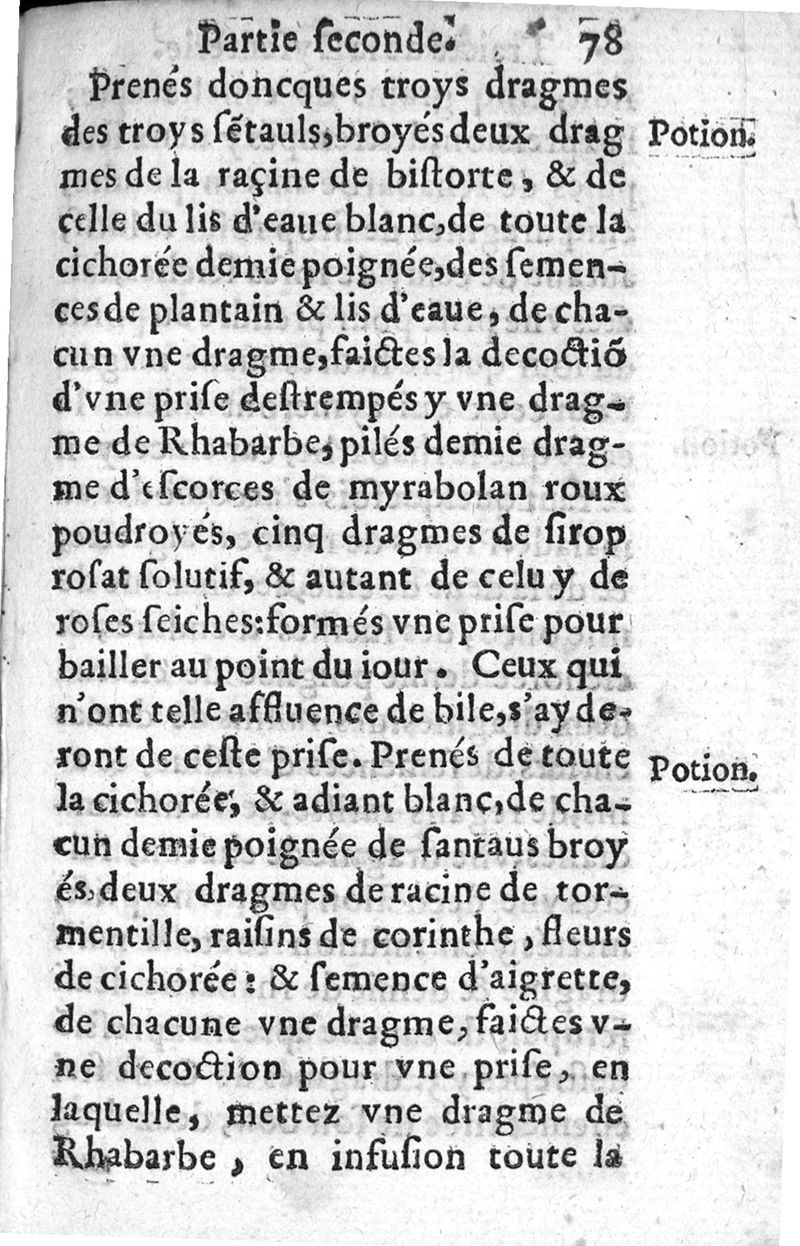 Partie ſeconde. 78
Prenés doncques troys dragmes
des troys ſẽtauls, broyés deux drag
Potion.
mes de la raçine de biſtorte, & de
celle du lis d'eaue blanc, de toute la
cichorée demie poignée, des ſemen-
ces de plantain & lis d'eaue, de cha-
cun vne dragme, faictes la decoctiõ
d'vne priſe deſtrempés y vne drag-
me de Rhabarbe, pilés demie drag-
me d'eſcorces de myrabolan roux
poudroyés, cinq dragmes de ſirop
roſat ſolutif, & autant de celuy de
roſes ſeiches: formés vne priſe pour
bailler au point du iour. Ceux qui
n'ont telle affluence de bile, s'ayde-
ront de ceſte priſe. Prenés de toute
Potion.
la cichorée, & adiant blanc, de cha-
cun demie poignée de ſantaus broy
és, deux dragmes de racine de tor-
mentille, raiſins de corinthe, fleurs
de cichorée: & ſemence d'aigrette,
de chacune vne dragme, faictes v-
ne decoction pour vne priſe, en
laquelle, mettez vne dragme de
Rhabarbe, en infuſion toute la